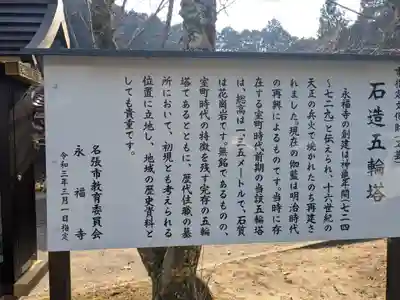 石造五輪塔
永福寺の創建は神亀年間(七二四
〜七二九)と伝えられ、十六世紀の
天正の兵火で焼かれたのち再建さ
れました。現在の伽藍は明治時代
の再興によるものです。当時に存
在する室町時代前期の当該五輪塔
は、総高は一・三五メートルで、石質
は花崗岩です。無銘であるものの、
室町時代の特徴を残す完存の五輪
塔であるとともに、歴代住職の墓
所において、初現とも考えられる
位置に立地し、地域の歴史資料と
しても貴重です。
名張市教育委員会
永福寺
令和三年三月一日指定